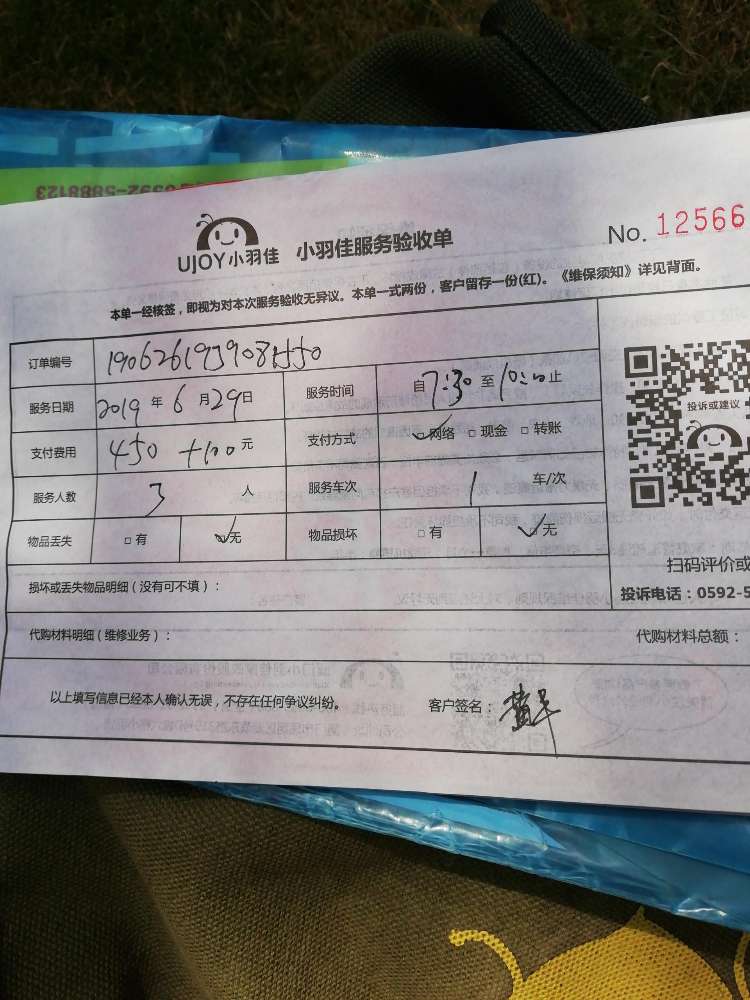 0592-5888123
UJOY小羽佳 小羽佳服务验收单 No. 12566
本单一经核签，即视为对本次服务验收无异议。本单一式两份，客户留存一份(红)。《维保须知》详见背面。
订单编号
服务日期 2019 年 6 月 29 日 服务时间 自 7:30 至 10:00 止
支付费用 450 +100 元 支付方式 ☑网络 □现金 □转账
服务人数 3 人 服务车次 1 车/次
物品丢失 □有 ☑无 物品损坏 □有 ☑无
投诉或建议
扫码评价或
投诉电话：0592-5
损坏或丢失物品明细（没有可不填）：
代购材料明细（维修业务）： 代购材料总额：
以上填写信息已经本人确认无误，不存在任何争议纠纷。 客户签名：